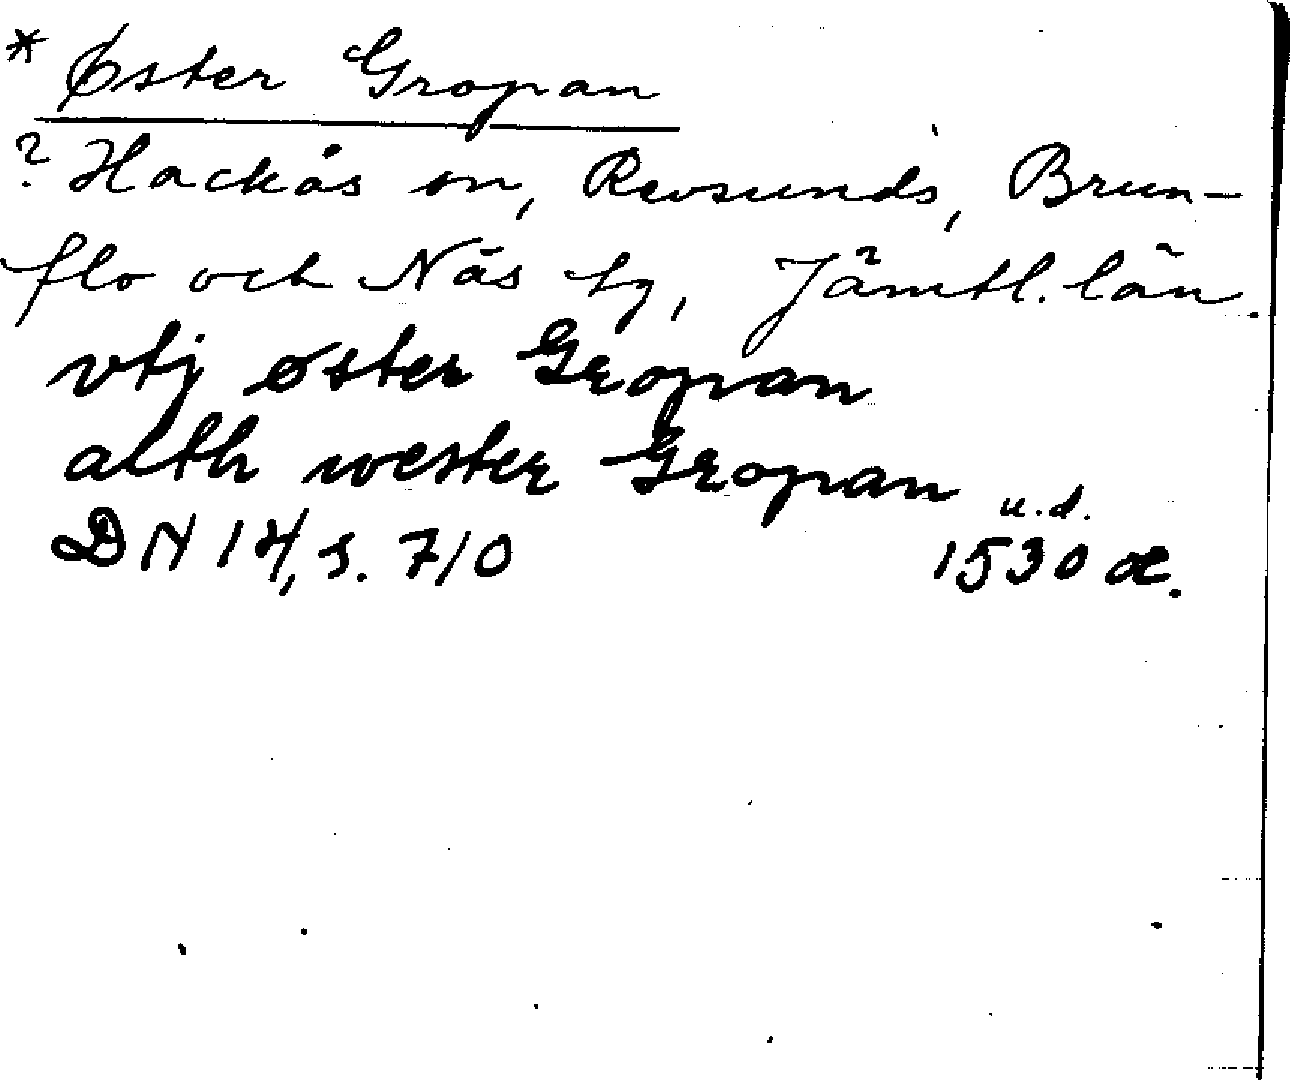 * Øster Gropan
? Hackås sn, Revsunds, Brun-
flo och Näs tg, Jämtl. län.
vtj øster Gropan
alth wester Gropan
u.d.
DN 14, s. 710 1530 æ.